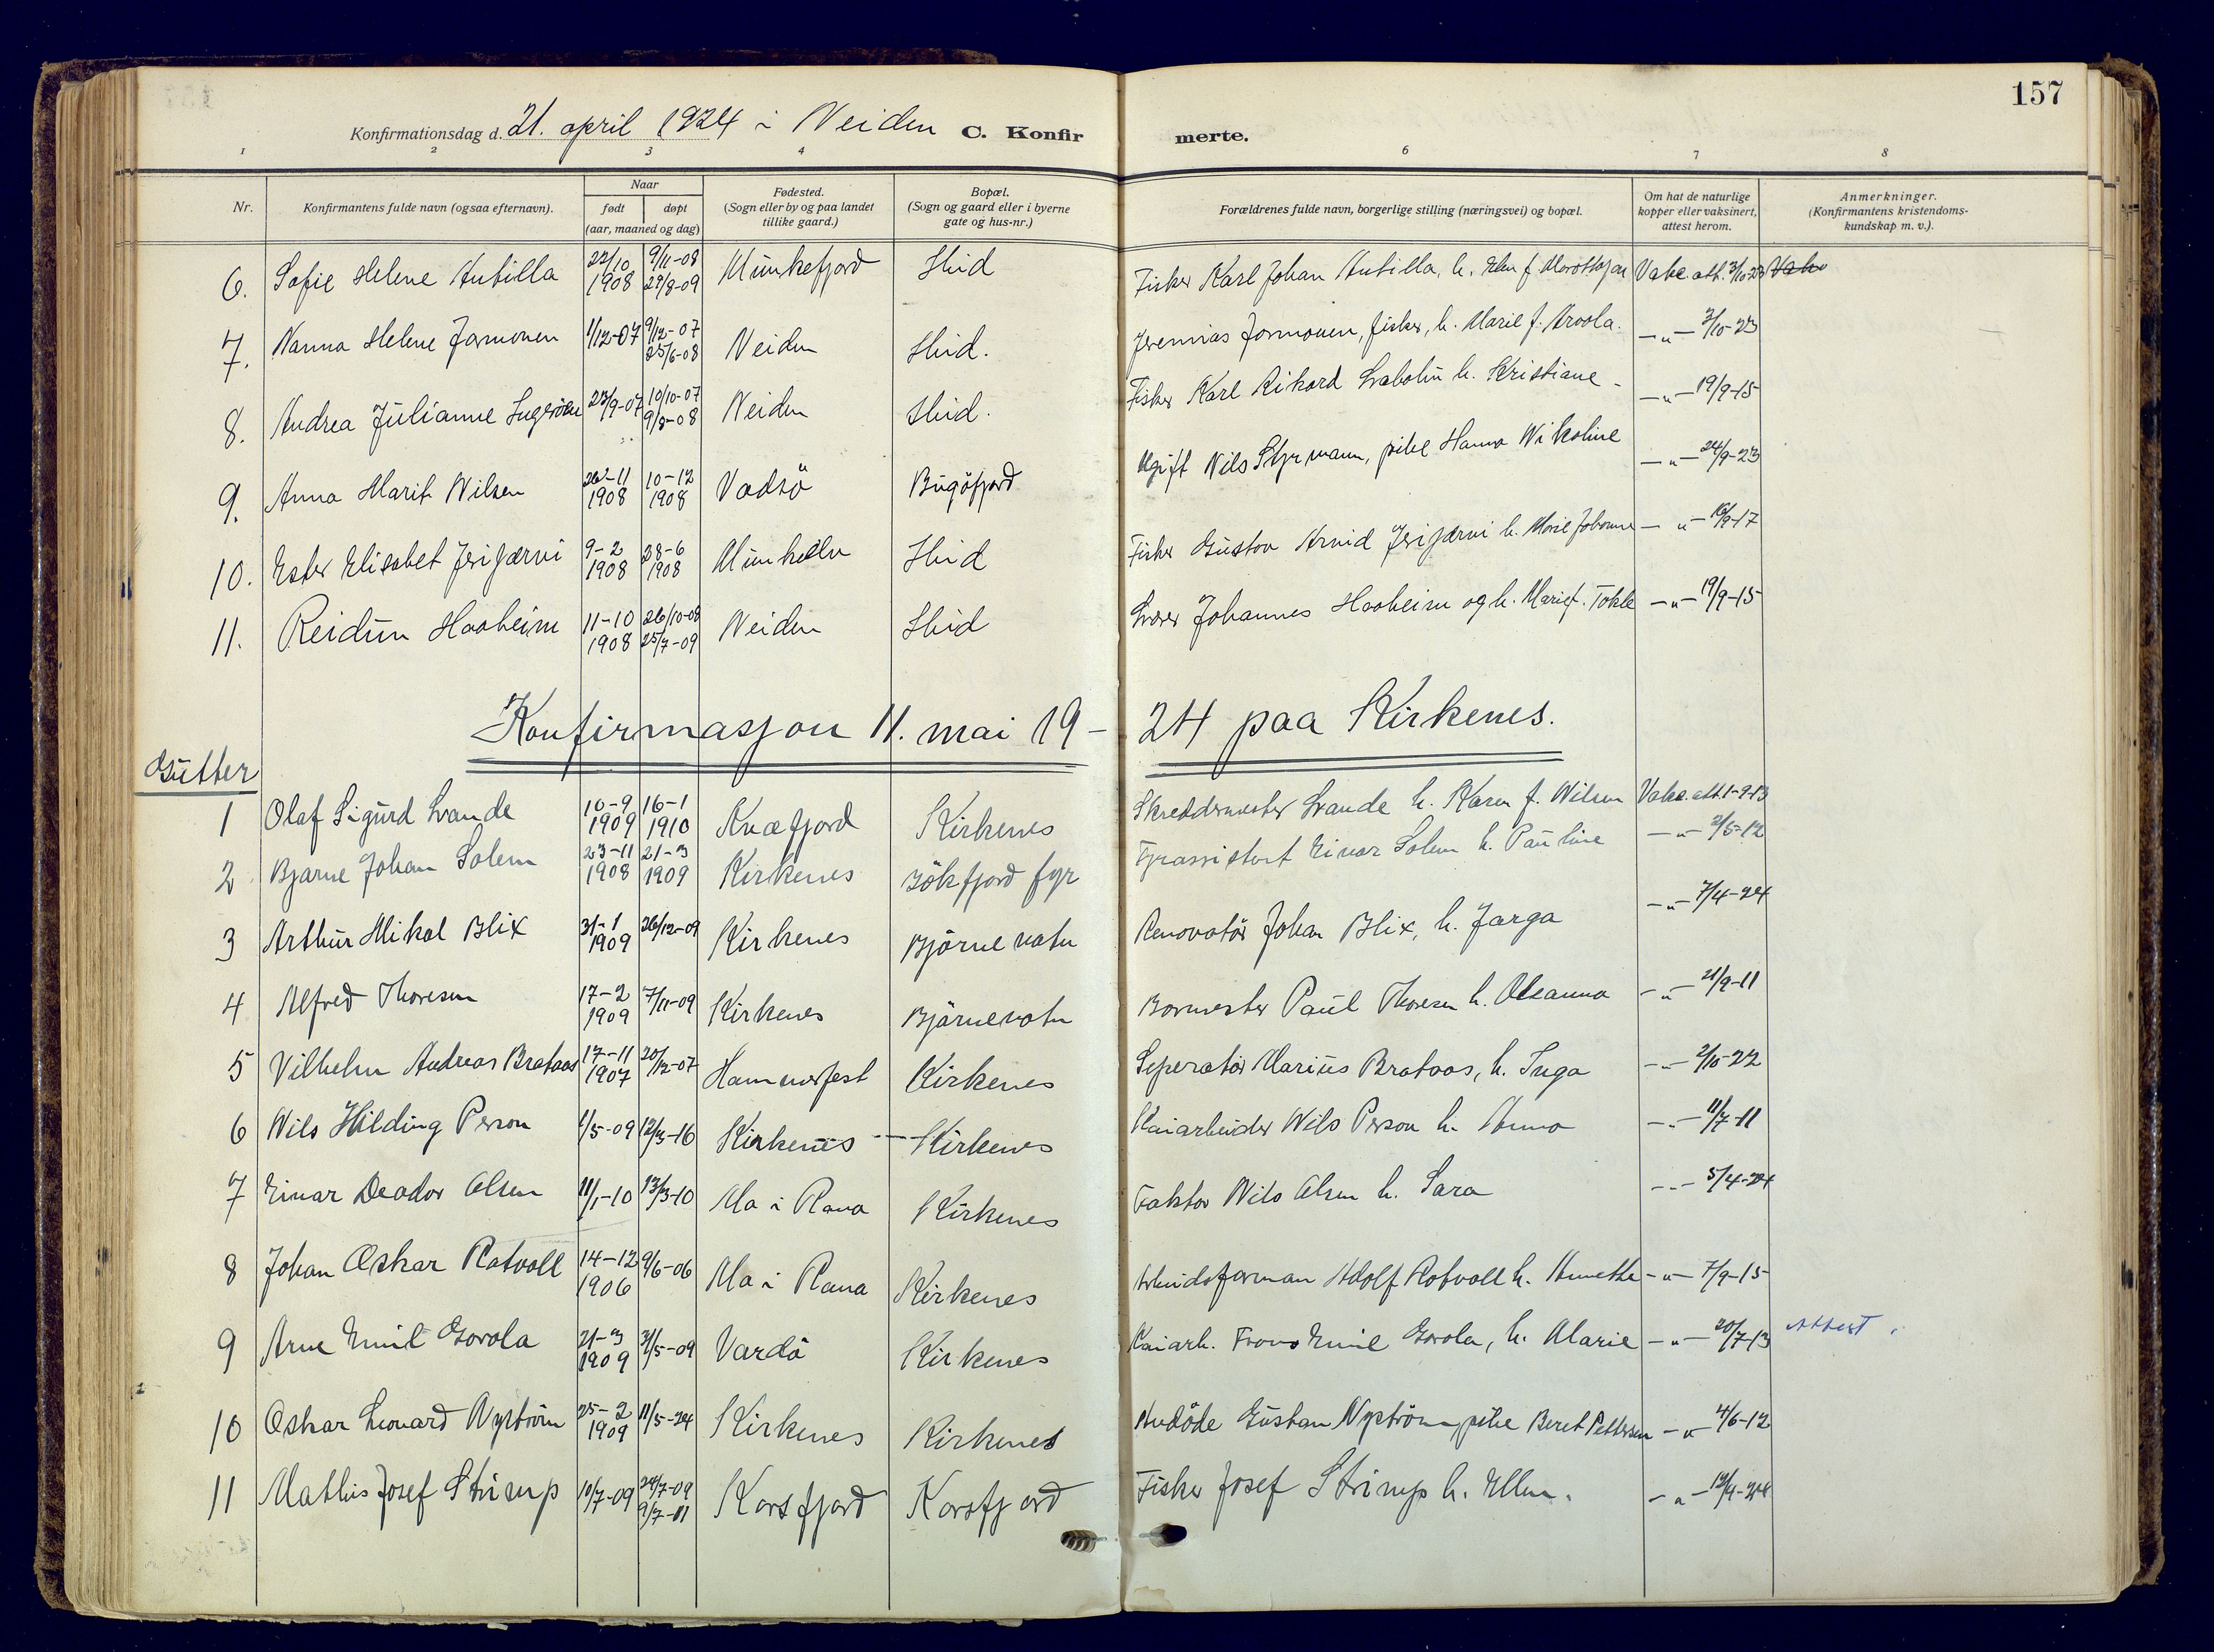 157
Konfirmationsdag d. 21. april 1924 i Neiden C. Konfirmerte.
1 2 3 4 6 7 8
Nr. Konfirmantens fulde navn (ogsaa efternavn). Naar født døpt (aar, maaned og dag) Fødested. (Sogn eller by og paa landet tillike gaard.) Bopæl. (Sogn og gaard eller i byerne gate og hus-nr.) Forældrenes fulde navn, borgerlige stilling (næringsvei) og bopæl. Om hat de naturlige kopper eller vaksinert, attest herom. Anmerkninger. (Konfirmantens kristendomskundskap m. v.).
6. Sofie Helene Antilla 22/10 1908 9/11-08 29/8-09 Munkefjord Ibid Fisker Karl Johan Antilla, h. Elen f. Vakc. att. 3/10-23
7. Nanna Helene Jarmonen 1/12-07 9/12-07 25/6-08 Neiden Ibid. Jeremias Jarmonen, fisker, h. Marie f. Aroola. —"— 3/10-23
8. Andrea Julianne 23/9-07 10/10-07 9/8-08 Neiden Ibid. Fisker Karl Rikard h. Kristiane —"— 19/9-15
9. Anna Marit Nilsen 26-11 1908 10-12 1908 Vadsö Bugöfjord Ugift Nils Styrmann, pike Hanna Nikoline —"— 24/9-23
10. Ester Elisabet Jerijærvi 9-2 1908 28-6 1908 Munkelv Ibid Fisker Gustav Arvid Jerijærvi h. Marie Johanne —"— 16/9-17
11. Reidun Haaheim 11-10 1908 26/10-08 25/7-09 Neiden Ibid Lærer Johannes Haaheim og h. Marie f. Tokle —"— 19/9-15
Konfirmasjon 11. mai 19-24 paa Kirkenes.
Gutter
1 Olaf Sigurd Lande 10-9 1909 16-1 1910 Kvæfjord Kirkenes Skreddermester Lande h. Karen f. Nilsen Vakc. att. 1-9-13
2 Bjarne Johan Solem 23-11 1908 21-3 1909 Kirkenes Bökfjord fyr Fyrassistent Einar Solem h. Pauline —"— 2/5-12
3 Arthur Mikal Blix 31-1 1909 26/12-09 Kirkenes Björnevatn Renovatör Johan Blix, h. Jarga —"— 7/4-24
4 Alfred Thoresen 17-2 1909 7/11-09 Kirkenes Björnevatn Bormester Paul Thoresen h. Oleanna —"— 21/9-11
5 Vilhelm Andreas Brataas 17-11 1907 20/12-07 Hammerfest Kirkenes Seperatör Marius Brataas, h. Inga —"— 2/10-22
6 Nils Hilding Person 1/5-09 12/3-16 Kirkenes Kirkenes Kaiarbeider Nils Person h. Anna —"— 11/7-11
7 Einar Deodor Olsen 11/1-10 13/3-10 Mo i Rana Kirkenes Faktor Nils Olsen h. Sara —"— 5/4-24
8 Johan Oskar Rotvoll 14-12 1906 9/6-06 Mo i Rana Kirkenes Arbeidsforman Adolf Rotvoll h. Annethe —"— 7/9-15
9 Arne Emil Gorola 21-3 1909 31/5-09 Vardö Kirkenes Kaiarb. Frans Emil Gorola, h. Marie —"— 20/7-13 Attest.
10 Oskar Leonard Nyström 25-2 1909 11/5-24 Kirkenes Kirkenes Avdöde Gustav Nyström, pike Beret Pettersen —"— 4/6-12
11 Mathis Josef Strimp 10/7-09 24/7-09 9/7-11 Korsfjord Korsfjord Fisker Josef Strimp h. Ellen. —"— 12/4-24